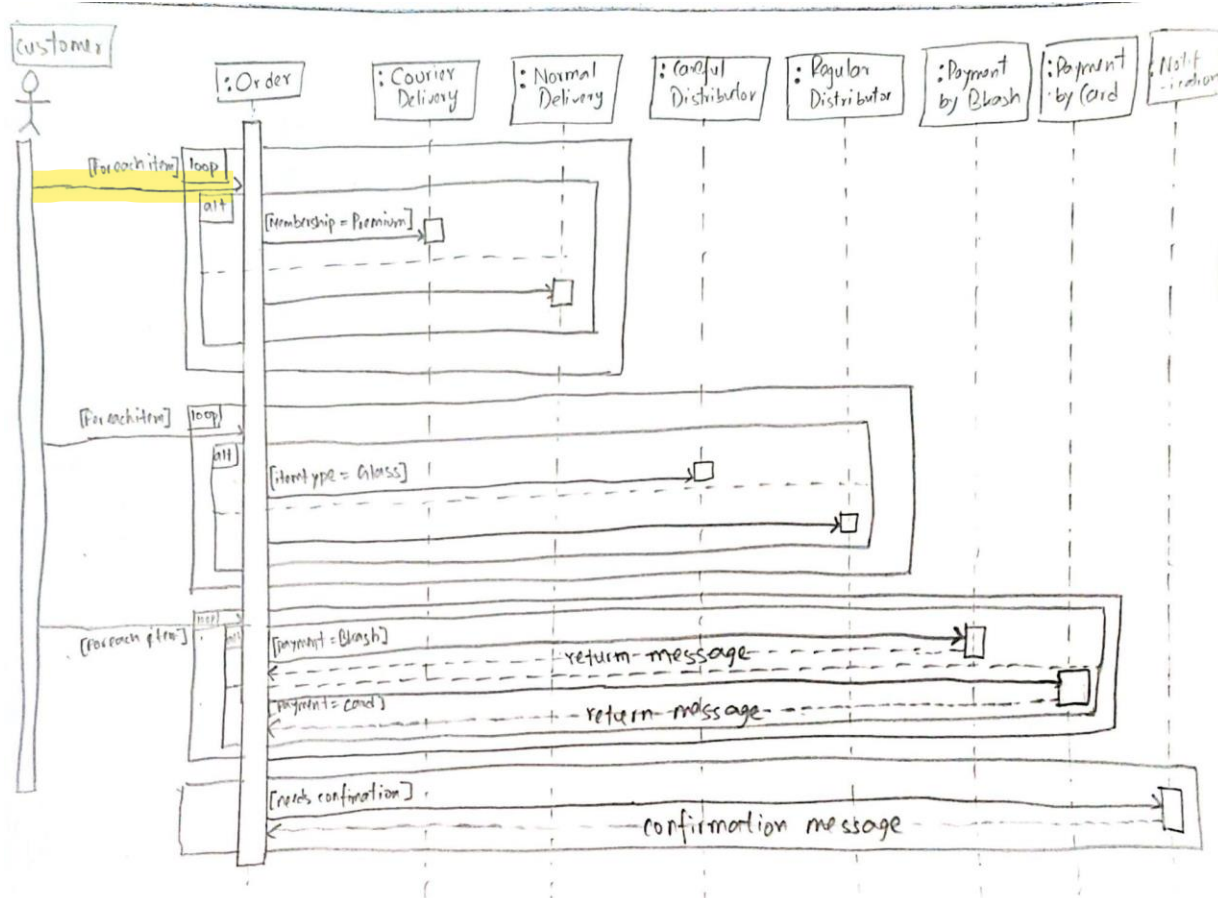 Customer
:Order
: Courier
Delivery
: Normal
Delivery
: Careful
Distributor
: Regular
Distributor
:Payment
by Bkash
:Payment
by Card
:Notif
-ication
[Foreach item]
loop
alt
[Membership = Premium]
[Foreach item]
loop
alt
[itemtype = Glass]
[Foreach item]
loop
alt
[payment = Bkash]
return message
[payment = card]
return message
[needs confirmation]
confirmation message